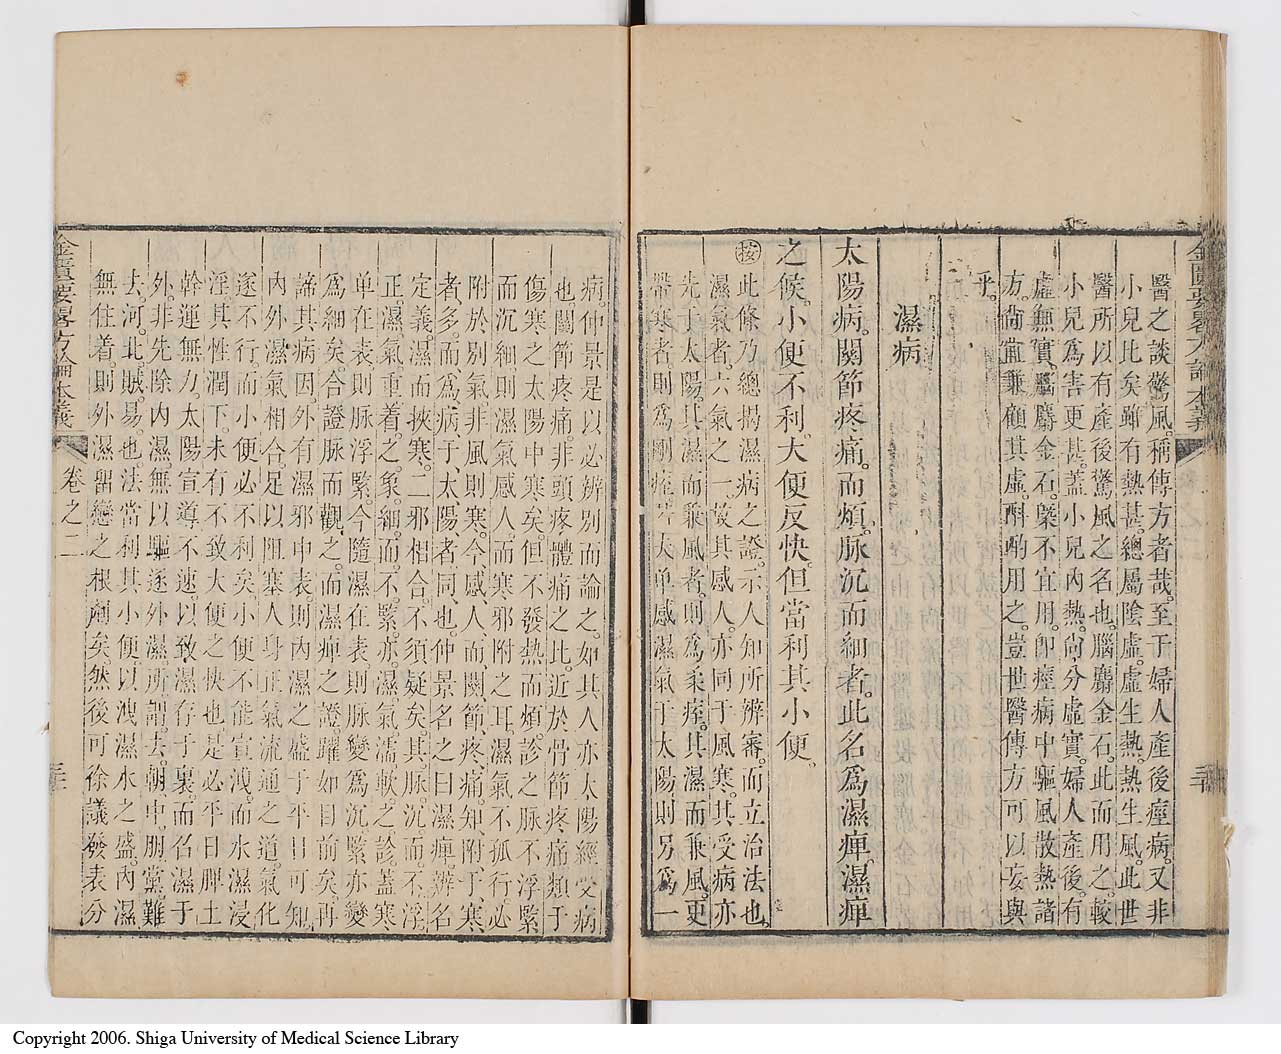 醫之談驚風。稱傳方者哉。至于婦人產後痙病。又非
小兒比矣。雖有熱甚。總屬陰虛。虛生熱。熱生風。此世
醫所以有產後驚風之名也。腦麝金石。此而用之。較
小兒爲害更甚。蓋小兒內熱。尚分虛實。婦人產後有
虛無實。腦麝金石。槩不宜用。卽痙病中驅風散熱諸
方。尚當兼顧其虛。酌用之。豈世醫傳方可以妄與
乎。
濕病
太陽病。關節疼痛。而煩。脈沉而細者。此名爲濕痺。濕痺
之候。小便不利。大便反快。但當利其小便。
按此條乃總揭濕病之證。示人知所辨審。而立治法也。
濕氣者。六氣之一。故其感人。亦同于風寒。其受病亦
先于太陽。其濕而兼風者。則爲柔痙。其濕而兼風。更
帶寒者。則爲剛痙。若夫单感濕氣于太陽。則另爲一
金匱要畧方論本義
卷之二
病。仲景是以必辨別而論之。如其人亦太陽經受病
也。關節疼痛。非頭疼體痛之比。近於骨節疼痛。類于
傷寒之太陽中寒矣。但不發熱而煩。診之脈不浮緊
而沉細。則濕氣感人。而寒邪附之耳。濕氣不孤行。必
附於別氣。非風則寒。今感人而關節疼痛。知附于寒
者多。而爲病于太陽者同也。仲景名之曰濕痺。辨名
定義。濕而挾寒。二邪相合。不須疑矣。其脈沉。而不浮
正。濕氣重着之象。細。而不緊。亦濕氣濡軟之診。蓋寒
单在表。則脈浮緊。今隨濕在表。則脈變爲沉。緊亦變
爲細矣。合證脈而觀之。而濕痺之證。躍如目前矣。再
諦其病因。外有濕邪中表。則內濕之盛于平日可知
內外濕氣相合。足以阻塞人身正氣流通之道。氣化
遂不行。而小便必不利矣。小便不能宣洩。而水濕浸
淫。其性潤下。未有不致大便之快也。是必平日脾土
幹運無力。太陽宣導不速。以致濕存于裏而召濕于
外。非先除內濕。無以驅逐外濕。所謂去朝中朋黨難
去。河北賊易也。法當利其小便。以洩濕水之盛。內濕
無住着。則外濕留戀之根剷矣。然後可徐議發表分
金匱要畧方論本義
卷之二
Copyright 2006. Shiga University of Medical Science Library